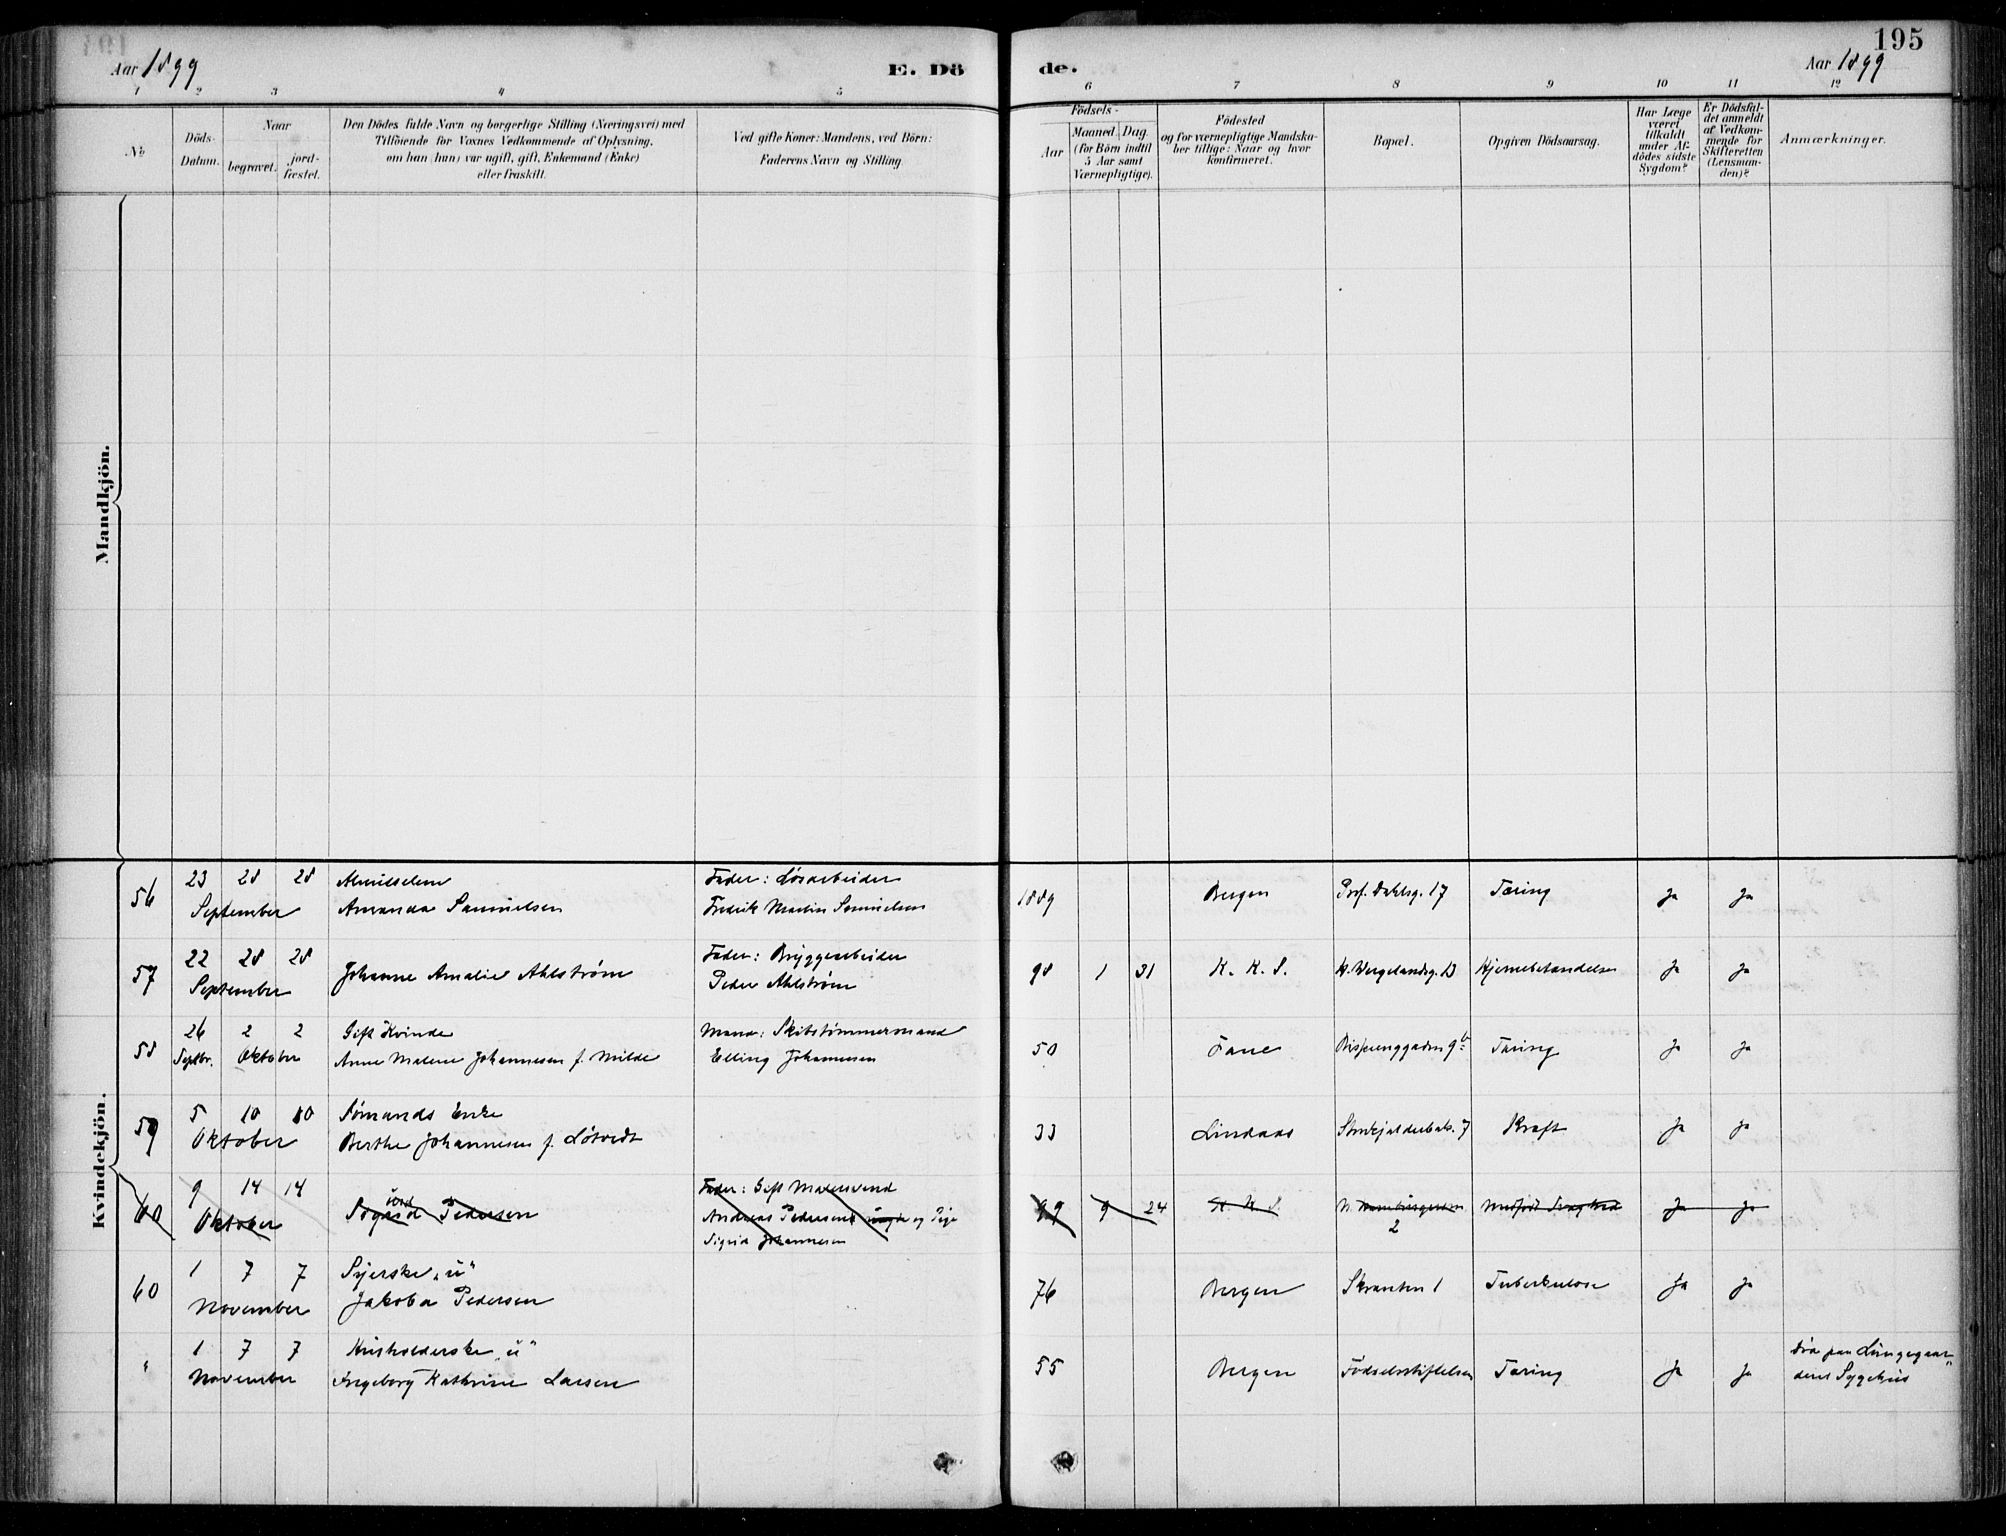 195
Aar 1899
E. Dö
de.
Aar 1899
1 2 3 4 5 6 7 8 9 10 11 12
No
Döds-
Datum.
Naar
begravet.
jord-
fæstet.
Den Dödes fulde Navn og borgerlige Stilling (Næringsvei) med
Tilföiende for Voxnes Vedkommende af Oplysning,
om han (hun) var ugift, gift, Enkemand (Enke)
eller fraskilt.
Ved gifte Koner: Mandens, ved Börn:
Faderens Navn og Stilling.
Födsels-
Aar
Maaned. Dag.
(for Börn indtil
5 Aar samt
Værnepligtige).
Födested
og for værnepligtige Mandska-
ber tillige: Naar og hvor
konfirmeret.
Bopæl.
Opgiven Dödsaarsag.
Har Læge
været
tilkaldt
under Af-
dödes sidste
Sygdom?
Er Dödsfal-
det anmeldt
af Vedkom-
mende for
Skifteretten
(Lensman-
den)?
Anmærkninger.
Mandkjön.
Kvindekjön.
56
23 28 28
September
Amanda Samuelsen
Fader: Løsarbeider
Fredrik Martin Samuelsen
1889
Bergen
Prof. Dahlsg. 17
Tæring
Ja
Ja
57
22 28 28
September
Johanne Amalie Ahlstrøm
Fader: Bryggearbeider
Peder Ahlstrøm
98 1 31
K. K. S.
H. Wergelandsg. 13
Hjernebetændelse
Ja
Ja
58
26 2 2
Septbr. Oktober
Gift Kvinde
Anne Malene Johannesen f. Milde
Mand: Skibstømmermand
Elling Johannesen
50
Fane
Tæring
Ja
Ja
59
5 10 10
Oktober
Sømands Enke
Berthe Johannesen f. Løtvedt
33
Lindaas
Kræft
Ja
Ja
60
9 14 14
Oktober
Pedersen
Fader: Gift Malersvend
Andreas Pedersen og Pige
Sigrid Johannesen
99 9 24
K. K. S
2
Medfødt Svaghed
Ja
Ja
60
1 7 7
November
Syerske „u"
Jakoba Pedersen
76
Bergen
Skranten 1
Tuberkulose
Ja
Ja
"
1 7 7
November
Husholderske „u"
Ingeborg Kathrine Larsen
55
Bergen
Fødselsstiftelsen
Tæring
Ja
Ja
Død paa Lungegaar-
dens Sygehus